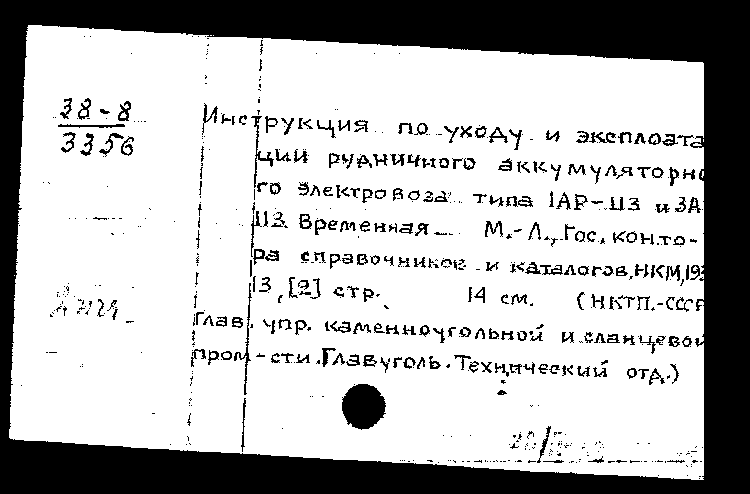 38-8
3356
Инструкция по уходу и эксплоата
ции рудничного аккумуляторно
го электровоза типа 1АР-113 и 3А
113. Временная. М.-Л., Гос. конто-
ра справочников и каталогов, НКМ, 193
13, [2] стр. 14 см. (НКТП.-СССР
Глав. упр. каменноугольной и сланцевой
пром-сти. Главуголь. Технический отд.)